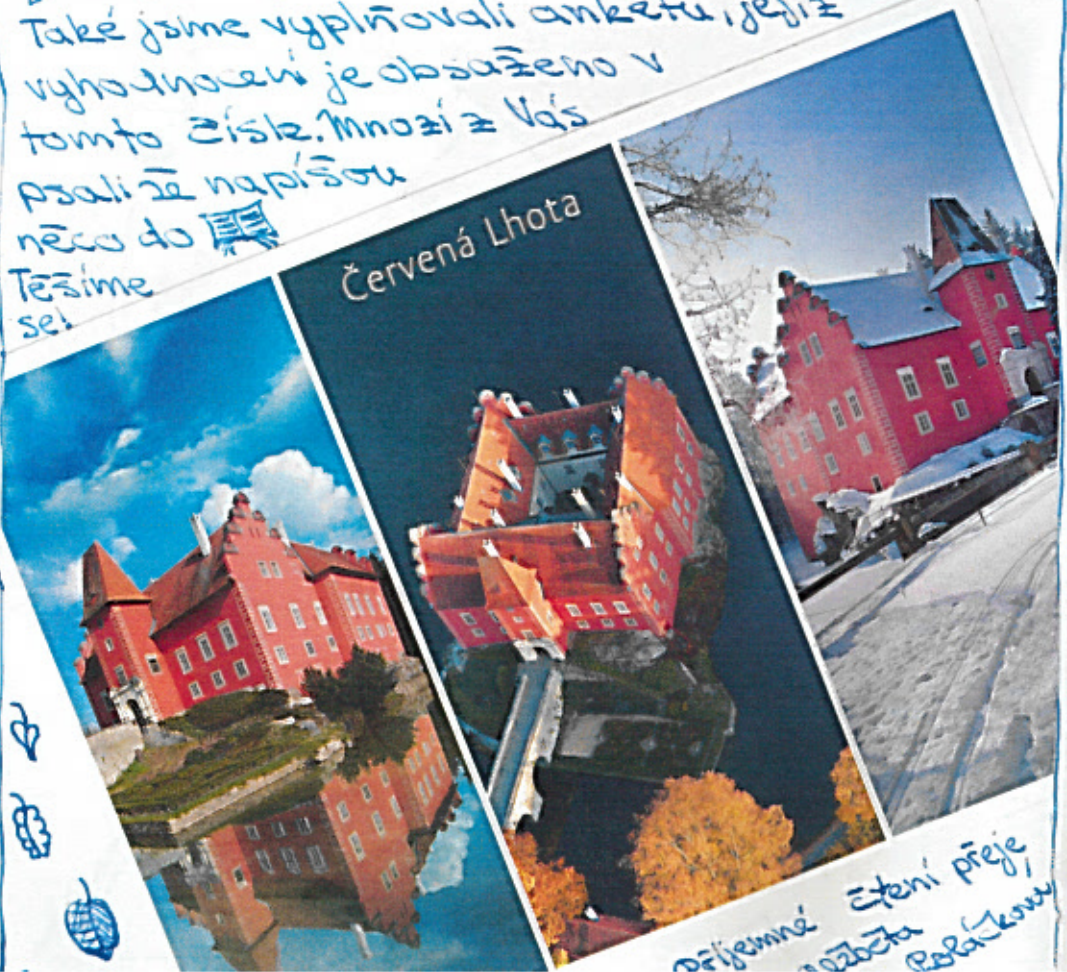 Také jsme vyplňovali anketu, jejíž
vyhodnocení je obsaženo v
tomto čísle. Mnozí z Vás
psali že napíšou
něco do
Těšíme
se!
Červená Lhota
Příjemné čtení přeje,
Poláčková